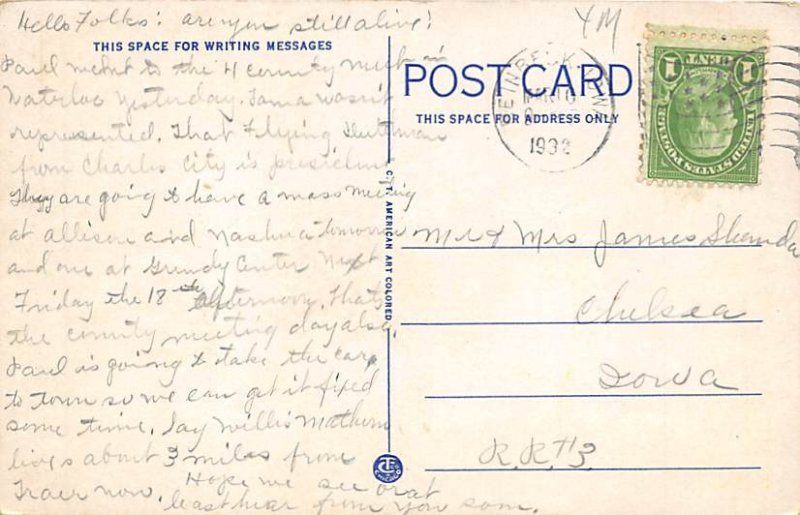 Hello Folks: are you still alive!
YM
THIS SPACE FOR WRITING MESSAGES
Paul went to the 4 county meet in
Waterloo yesterday. Tama wasn't
represented. That Flying Dutchman
from Charles City is president
They are going to have a mass meeting
at Allison and Nashua tomorrow
and one at Grundy Center Next
Friday the 18th afternoon. Thats
the county meeting day also.
Paul is going to take the car
to town so we can get it fixed
some time. Say Willis
lives about 3 miles from
Traer now. Hope we see or at
least hear from you soon.
POST CARD
THIS SPACE FOR ADDRESS ONLY
REINBECK
1932
1 CENT 1
UNITED STATES POSTAGE
C. T. AMERICAN ART COLORED
Mr & Mrs James
Chelsea
Iowa
R.R. #3
CHICAGO